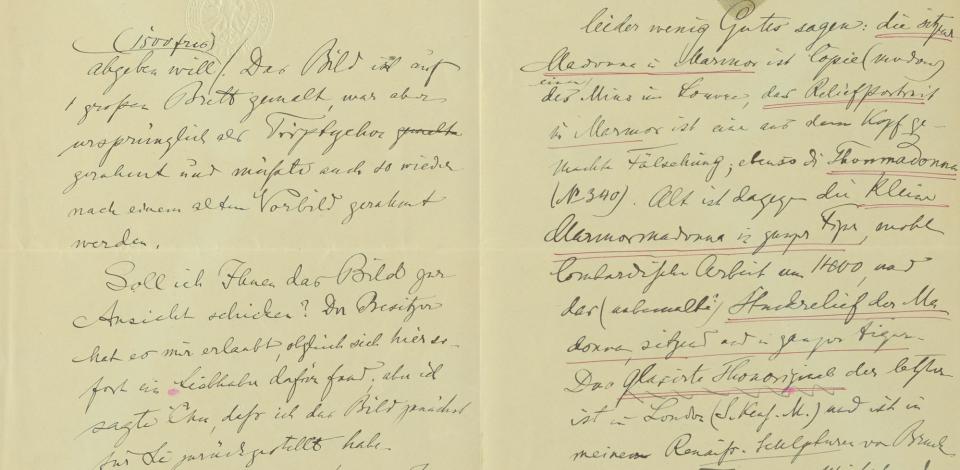 (1500 frcs)
abgeben will). Das Bild ist auf
1 großen Brett gemalt, war aber
ursprünglich als Triptychon gemalt
gerahmt und müßte auch so wieder
nach einem alten Vorbild gerahmt
werden.
Soll ich Ihnen das Bild zur
Ansicht schicken? Der Besitzer
hat es mir erlaubt, obgleich sich hier so-
fort ein Liebhaber dafür fand, aber ich
sagte Ihm, daß ich das Bild zunächst
für Sie zurückgestellt habe.
leider wenig Gutes sagen: die sitzende
Madonna in Marmor ist Copie (modern)
einer
des Mino im Louvre, das Reliefportrait
in Marmor ist eine aus dem Kopf ge-
machte Fälschung; ebenso die Thonmadonna
(No 340). Alt ist dagegen die Kleine
Marmormadonna in ganzer Figur, wohl
lombardische Arbeit um 1400, und
das (unbemalte) Stuckrelief der Ma-
donna, sitzend und in ganzer Figur.
Das glasirte Thonoriginal der letzten
ist in London (S. Kens. M.) und ist in
meinem Renaiss. Sculpturen von Bruck